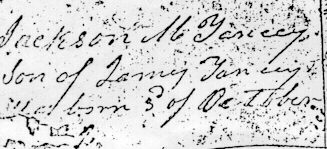 Jackson M Yancey
Son of James Yancey
was born 3d of October